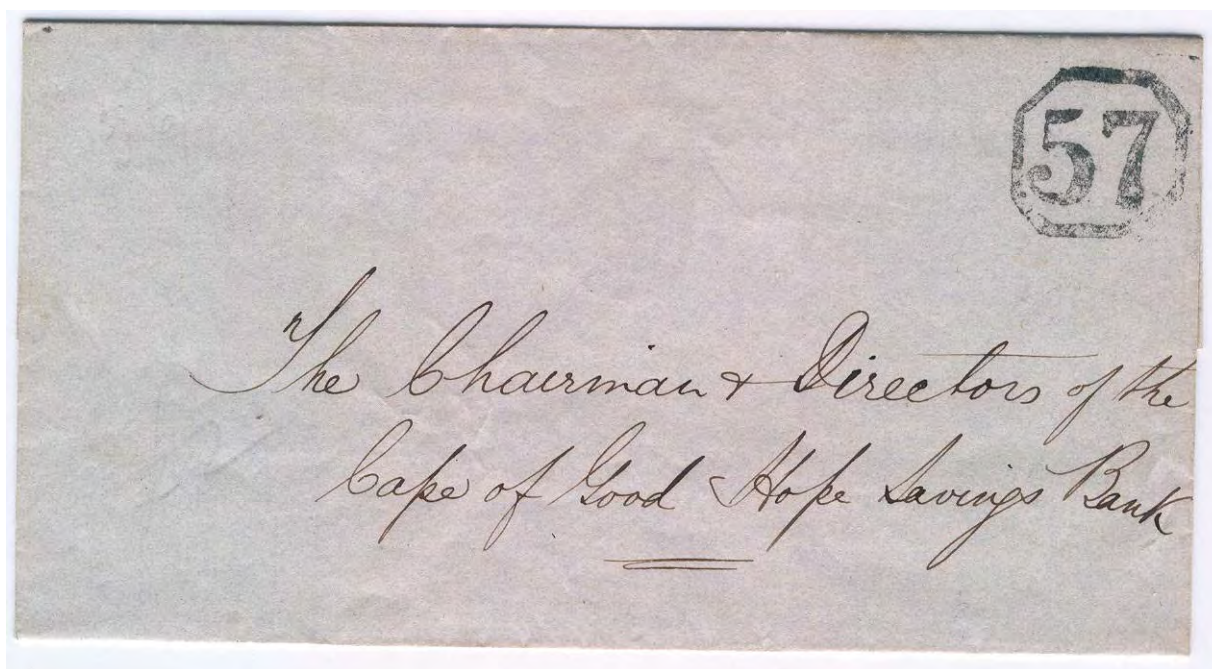 57
The Chairman & Directors of the
Cape of Good Hope Savings Bank